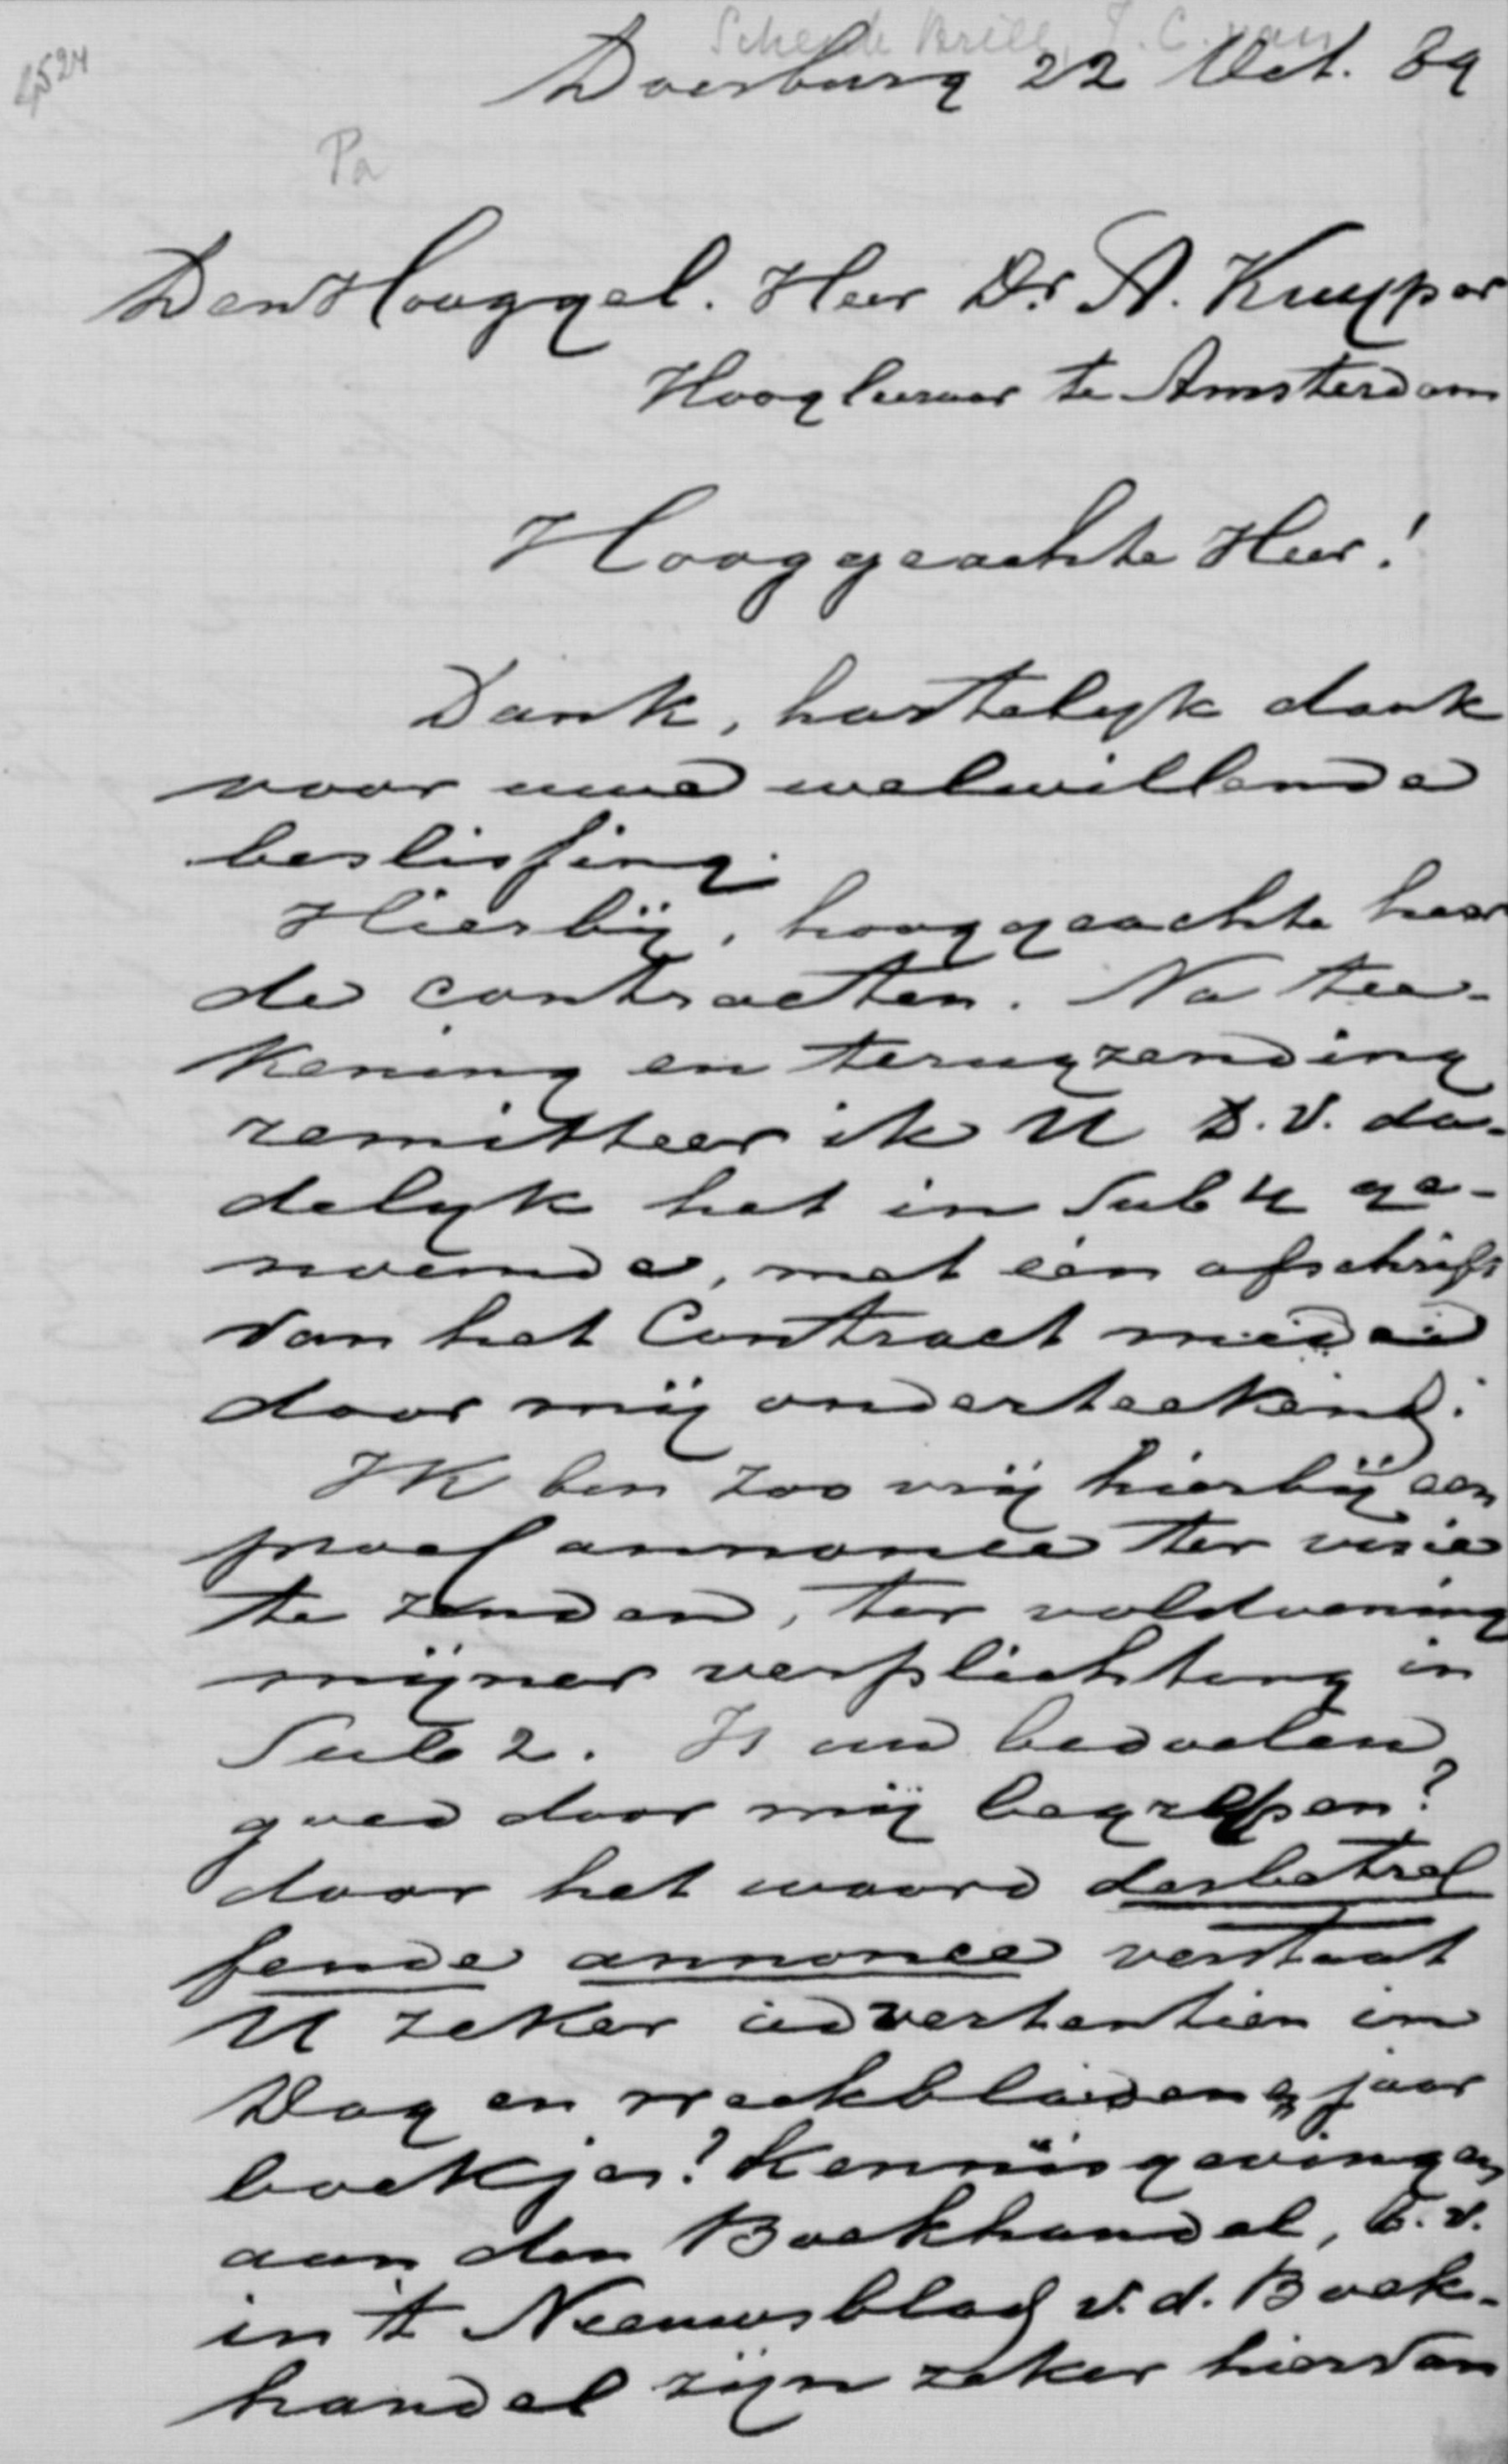 4524
Schenk Brill, J. C. van
Doesburg 22 Oct. 89
Pa
Den Hooggel. Heer Dr. A. Kuyper
Hoogleeraar te Amsterdam
Hooggeachte Heer!
Dank, hartelyk dank
voor uwe welwillende
beslissing.
Hierbij, hooggeachte heer
de contracten. Na tee-
kening en terugzending
remitteer ik U D.V. da-
delyk het in Sub 4 ge-
noemde, met één afschrift
van het Contract mede
door mij onderteekend.
Ik ben zoo vrij hierbij een
proef annonce ter visie
te zenden, ter voldoening
mijner verplichting in
Sub 2. Is uw bedoelen
goed door mij begrepen?
door het woord desbetref
fende annonce verstaat
U zeker advertentien in
Dag en weekbladen en jaar
boekjes? Kennisgevingen
aan den Boekhandel, b.v.
in 't Nieuwsblad v. d. Boek-
handel zijn zeker hiervan